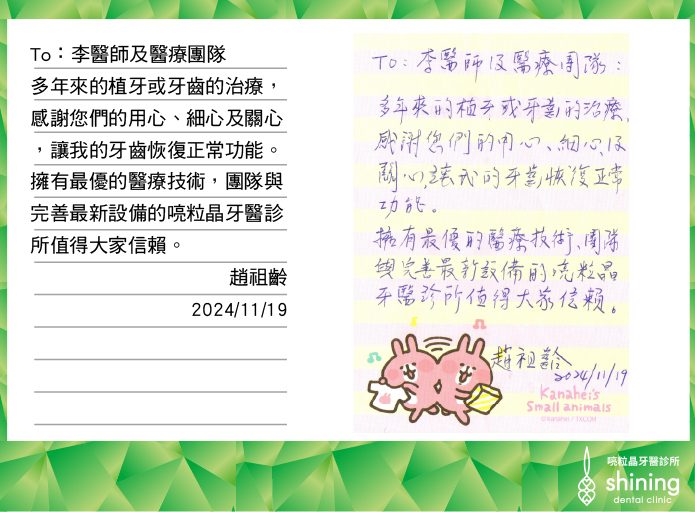 To：李醫師及醫療團隊
多年來的植牙或牙齒的治療，
感謝您們的用心、細心及關心
，讓我的牙齒恢復正常功能。
擁有最優的醫療技術，團隊與
完善最新設備的喨粒晶牙醫診
所值得大家信賴。
趙祖齡
2024/11/19
To：李醫師及醫療團隊：
多年來的植牙或牙齒的治療，
感謝您們的用心、細心及
關心，讓我的牙齒恢復正常
功能。
擁有最優的醫療技術、團隊
與完善最新設備的喨粒晶
牙醫診所值得大家信賴。
趙祖齡
2024/11/19
Kanahei's
Small animals
©kanahei / TXCOM
喨粒晶牙醫診所
shining
dental clinic